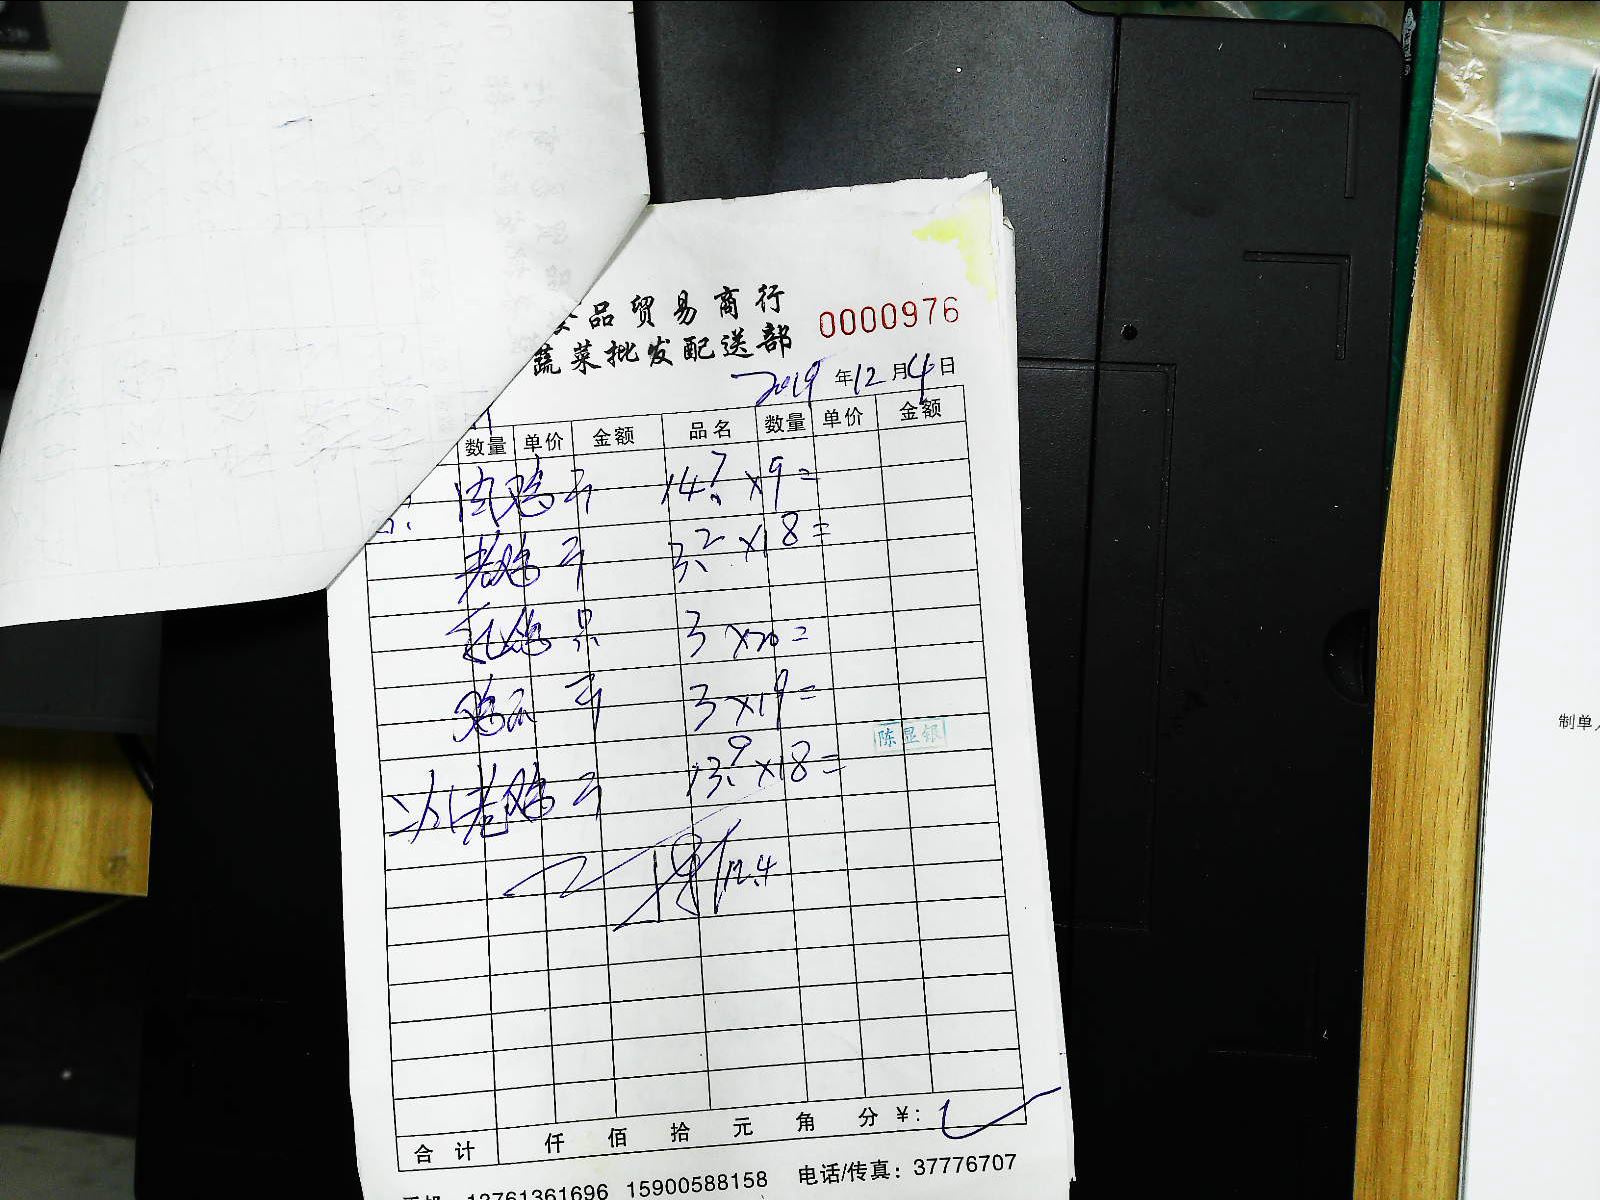 品贸易商行
蔬菜批发配送部
0000976
2019年12月4日
数量 单价 金额 品名 数量 单价 金额
肉鸡 斤 14.7×9=
老鸡 斤 3.2×18=
乳鸽 只 3×20=
斤 3×19=
老鸡 斤 13.9×18=
12.4
陈显银
合计 仟 佰 拾 元 角 分 ¥:
13761361696 15900588158 电话/传真: 37776707
制单人